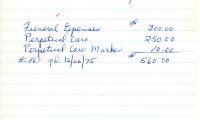 Funeral Expenses $ 300.00
Perpetual Care 250.00
Perpetual Care Marker 10.00
pd. 12/26/75 $ 560.00